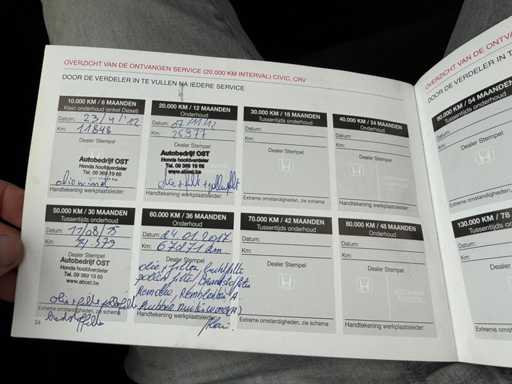 OVERZICHT VAN DE ONTVANGEN SERVICE (20.000 KM INTERVAL) CIVIC, CRV
DOOR DE VERDELER IN TE VULLEN NA IEDERE SERVICE
10.000 KM / 6 MAANDEN
Klein onderhoud (enkel Diesel)
Datum: 23/4/12
Km: 11848
Dealer Stempel
Autobedrijf OST
Honda hoofdverdeler
Tel. 09 369 19 66
www.abost.be
Handtekening werkplaatsleider:
20.000 KM / 12 MAANDEN
Onderhoud
Datum:
Km: 25977
Dealer Stempel
Autobedrijf OST
Honda hoofdverdeler
Tel. 09 369 19 66
www.abost.be
Handtekening werkplaatsleider:
30.000 KM / 18 MAANDEN
Tussentijds onderhoud
Datum:
Km:
Dealer Stempel
Extreme omstandigheden, zie schema
Handtekening werkplaatsleider:
40.000 KM / 24 MAANDEN
Onderhoud
Datum:
Km:
Dealer Stempel
Handtekening werkplaatsleider:
50.000 KM / 30 MAANDEN
Tussentijds onderhoud
Datum: 17/08/15
Km:
Dealer Stempel
Autobedrijf OST
Honda hoofdverdeler
Tel. 09 369 19 66
www.abost.be
Extreme omstandigheden, zie schema
60.000 KM / 36 MAANDEN
Onderhoud
Datum: 24.01.2017
Km: 67071 km
olie, filter, luchtfilter
pollenfilter, brandstoffilter
Remolie, Remblokken A.
Handtekening werkplaatsleider:
70.000 KM / 42 MAANDEN
Tussentijds onderhoud
Datum:
Km:
Dealer Stempel
Extreme omstandigheden, zie schema
Handtekening werkplaatsleider:
80.000 KM / 48 MAANDEN
Onderhoud
Datum:
Km:
Dealer Stempel
Handtekening werkplaatsleider:
54
OVERZICHT VAN DE ONTVA
DOOR DE VERDELER IN TE
90.000 KM / 54
Tussentijds o
Datum:
Km:
Dealer
Extreme omstandig
Handtekening we
130.000 KM / 78
Tussentijds
Datum:
Km:
Deale
Extreme omstand
Handtekening w